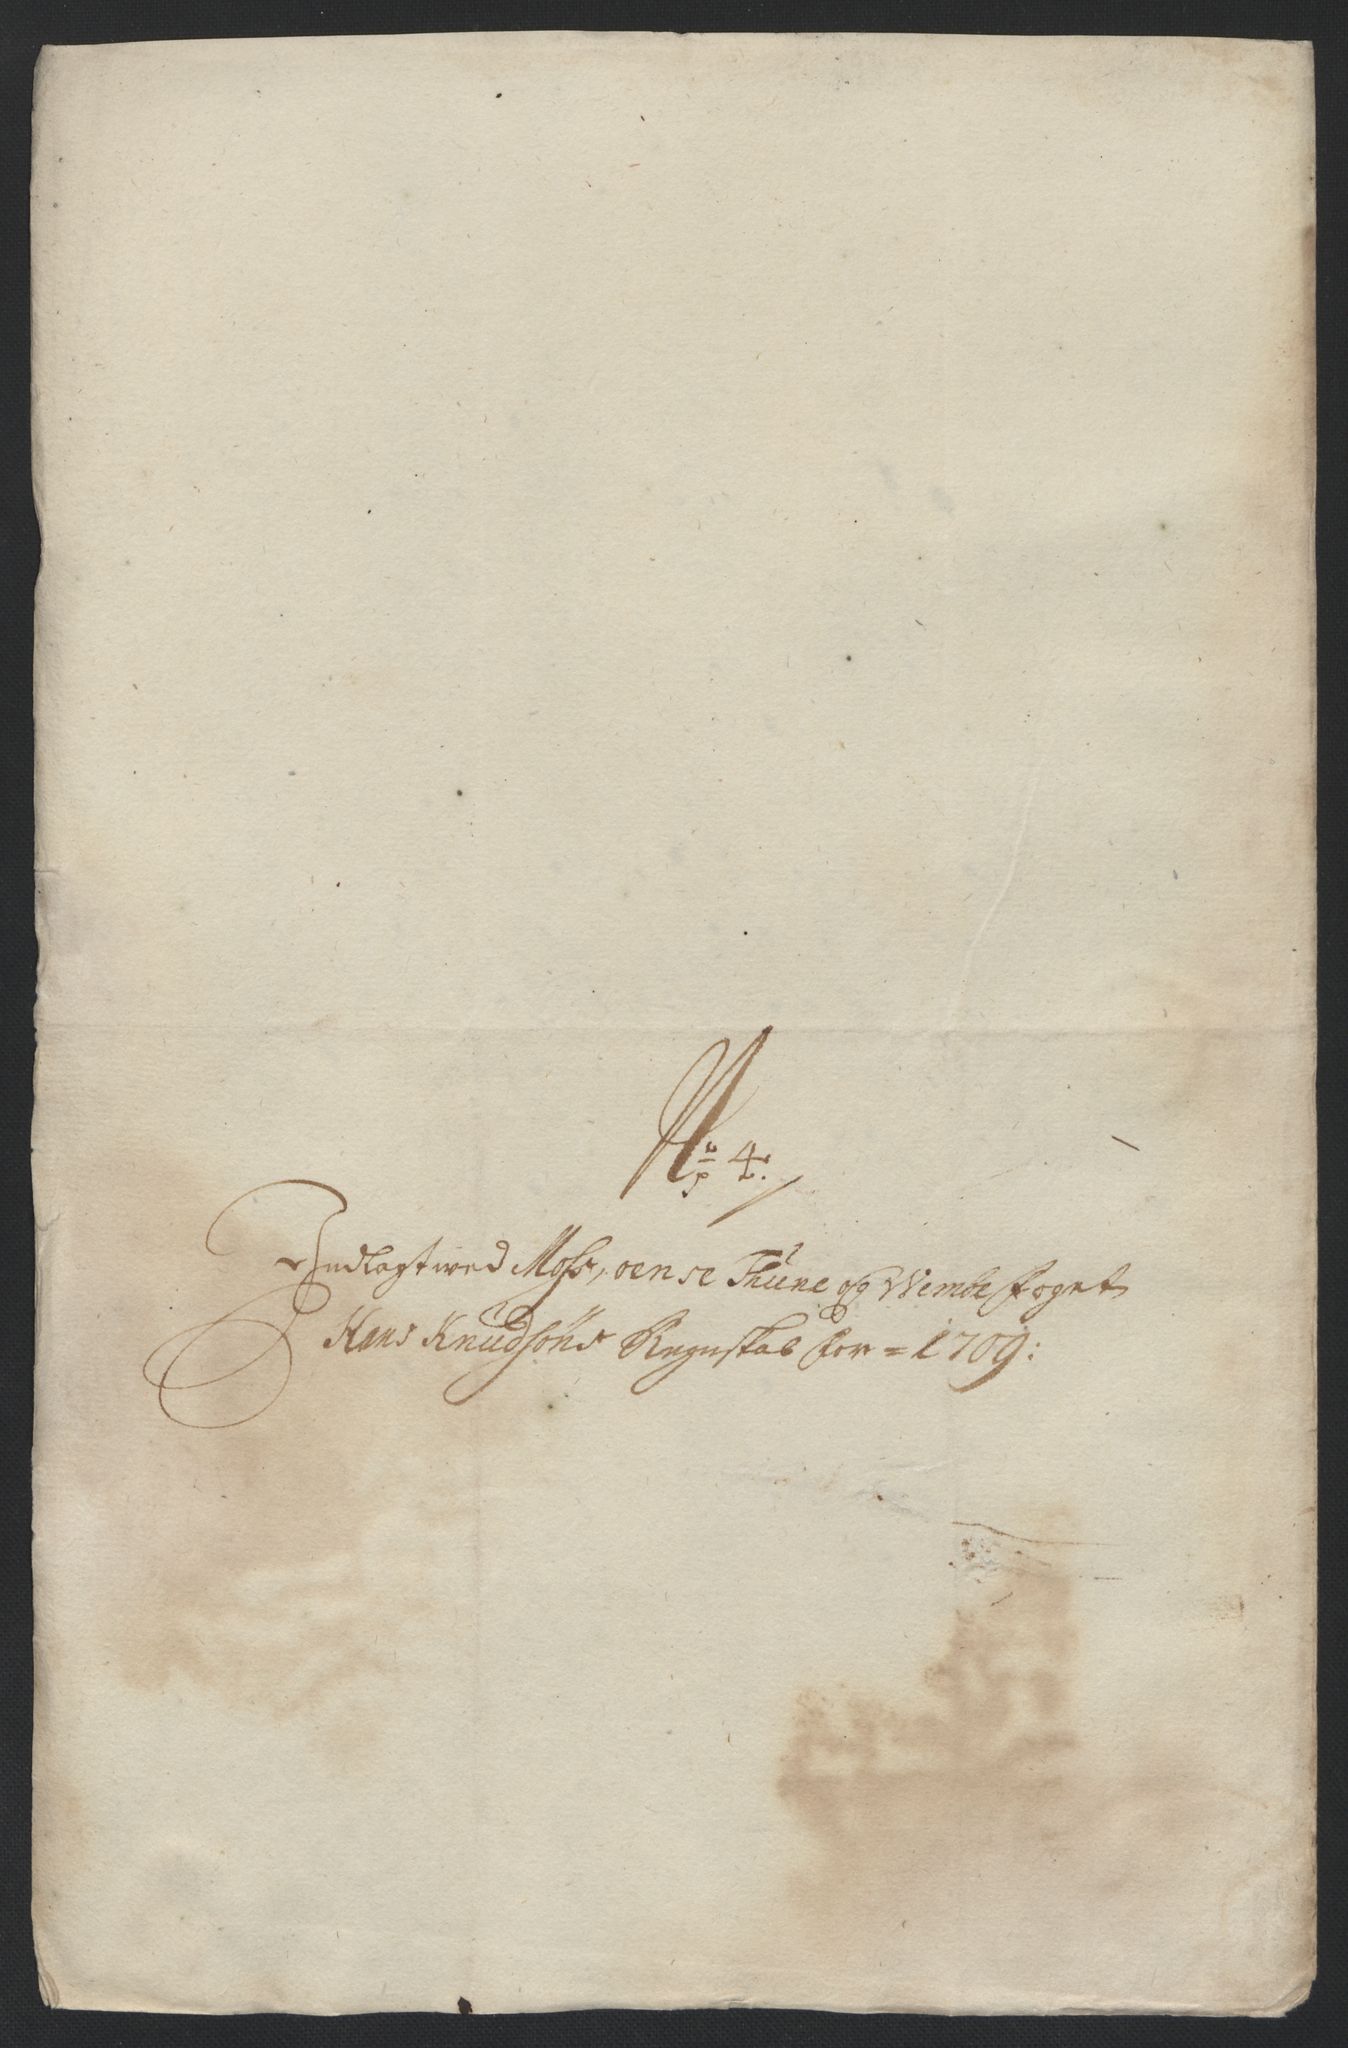 No 4:
Indlagt wed Moss, oense Thune og Wembe foget
Hans Knudsøns Regnskab for = 1709: